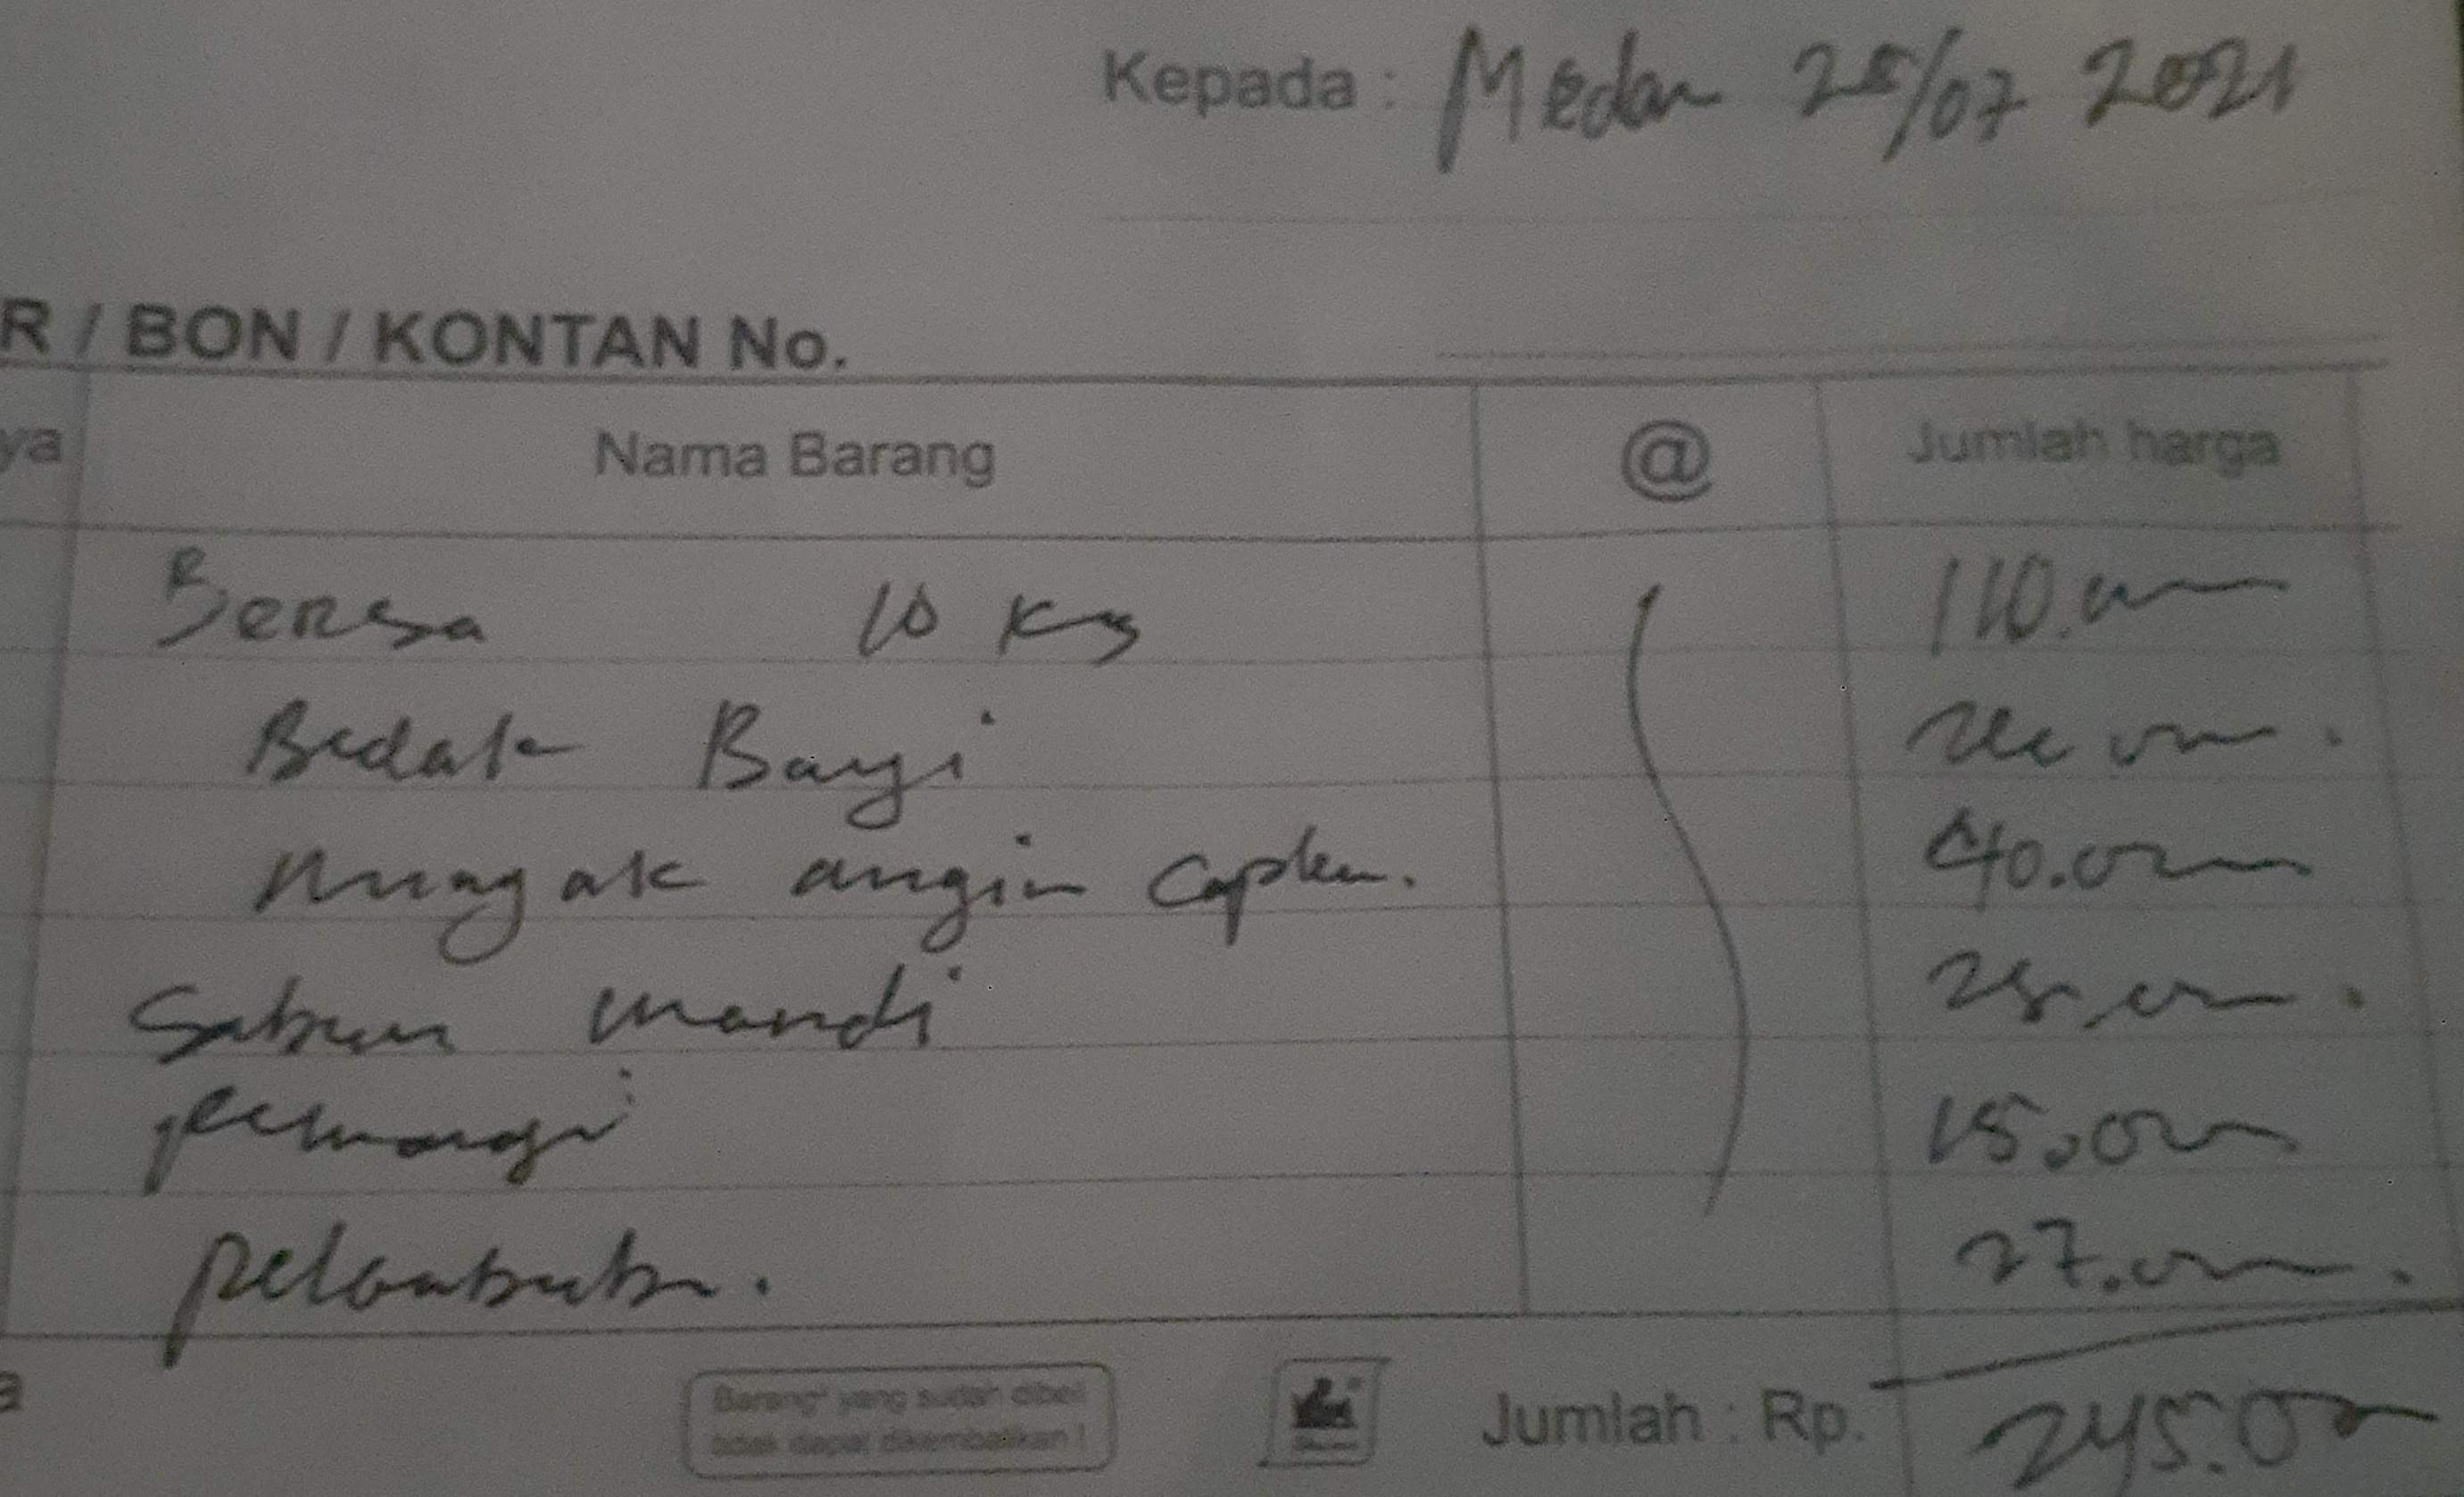 Kepada : Medan 25/07 2021
R / BON / KONTAN No.
ya Nama Barang @ Jumlah harga
Bersa 10 Kg 110.000
Bedak Bayi
minyak angin caplan. 40.000
Sabun mandi 25.000.
pewangi 15.000
27.000.
Barang² yang sudah dibeli
tidak dapat dikembalikan !
Jumlah : Rp. 245.000